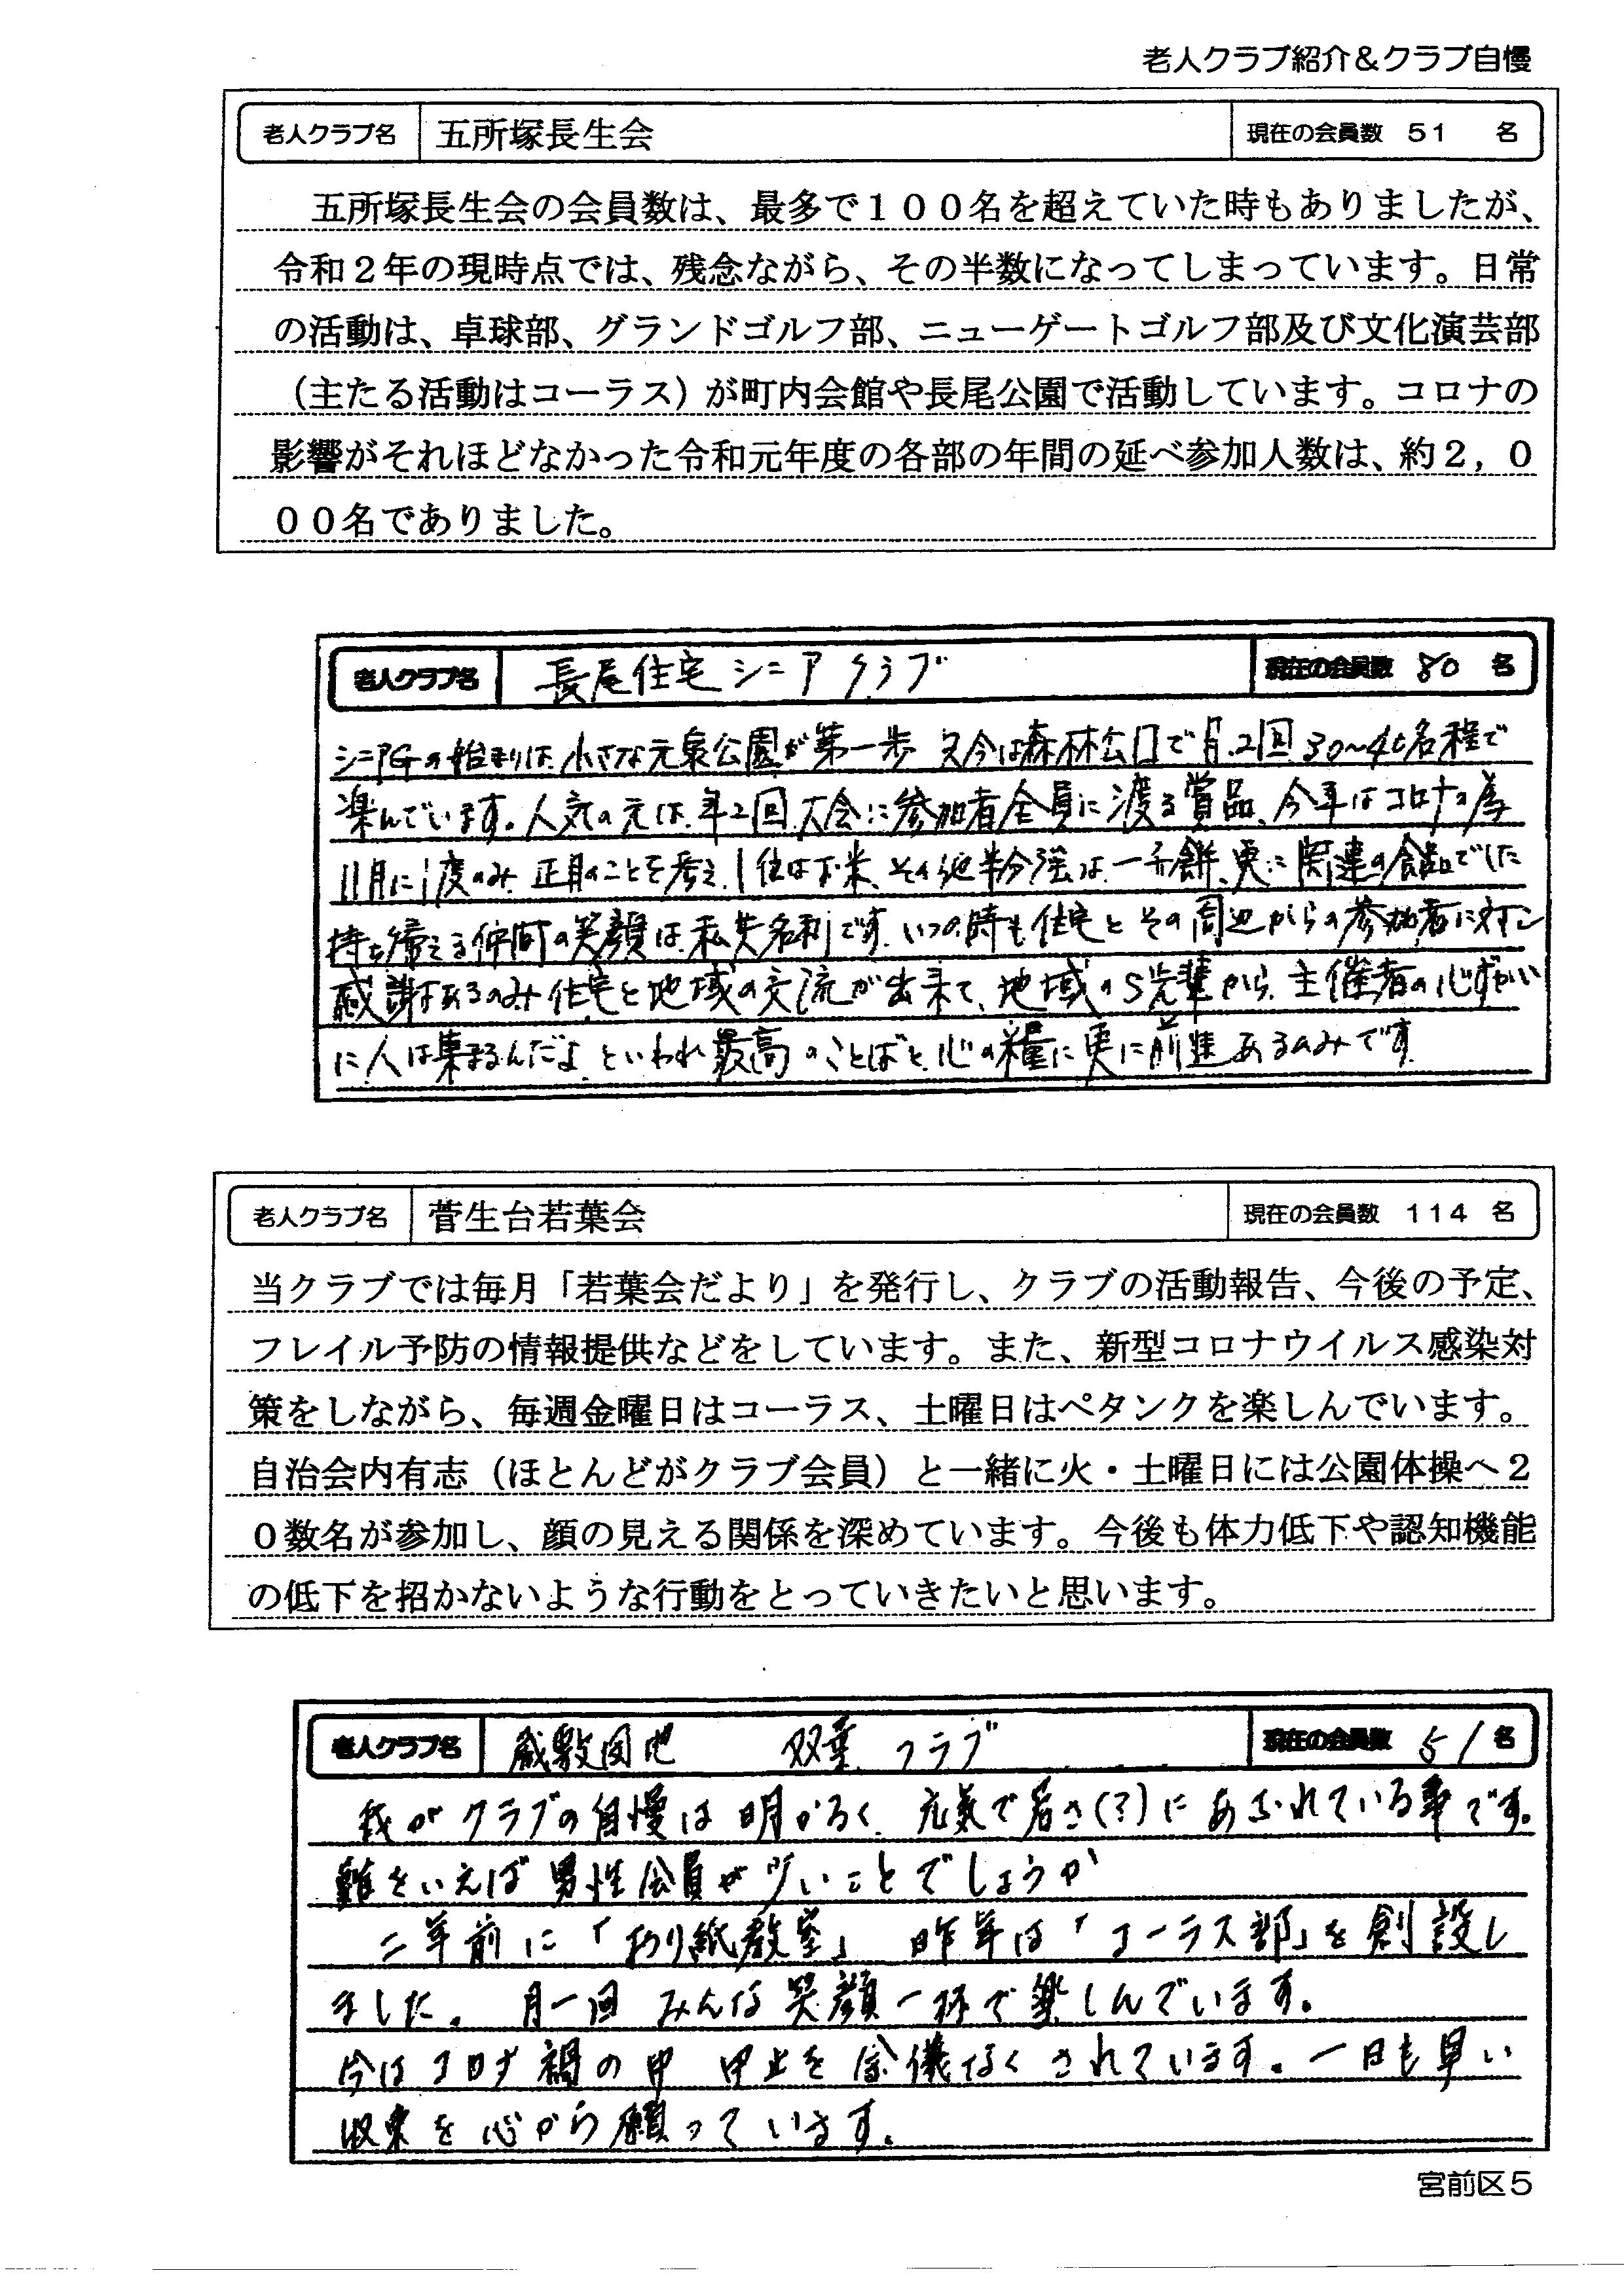 老人クラブ紹介＆クラブ自慢
老人クラブ名 五所塚長生会 現在の会員数 51 名
五所塚長生会の会員数は、最多で１００名を超えていた時もありましたが、
令和２年の現時点では、残念ながら、その半数になってしまっています。日常
の活動は、卓球部、グランドゴルフ部、ニューゲートゴルフ部及び文化演芸部
（主たる活動はコーラス）が町内会館や長尾公園で活動しています。コロナの
影響がそれほどなかった令和元年度の各部の年間の延べ参加人数は、約２，０
００名でありました。
老人クラブ名 長尾住宅シニアクラブ 現在の会員数 80 名
シニアGの始まりは、小さな元泉公園が第一歩 又今は森林公口で月、2回、30〜40名程で
楽んでいます。人気の元は、年2回、大会に参加者全員に渡る賞品、今年はコロナの為
11月に1度のみ、正月のことを考え、1位はお米、その他半分強は、一升餅、更に関連の食品でした
持ち帰える仲間の笑顔は、私共名利です、いつの時も住宅とその周辺からの参加者に対し
感謝あるのみ 住宅と地域の交流が出来て、地域のS先輩から、主催者の心ずかい
に、人は集まるんだよ、といわれ最高のことばと、心の糧に更に前進あるのみです
老人クラブ名 菅生台若葉会 現在の会員数 114 名
当クラブでは毎月「若葉会だより」を発行し、クラブの活動報告、今後の予定、
フレイル予防の情報提供などをしています。また、新型コロナウイルス感染対
策をしながら、毎週金曜日はコーラス、土曜日はペタンクを楽しんでいます。
自治会内有志（ほとんどがクラブ会員）と一緒に火・土曜日には公園体操へ２
０数名が参加し、顔の見える関係を深めています。今後も体力低下や認知機能
の低下を招かないような行動をとっていきたいと思います。
老人クラブ名 蔵敷団地 双葉クラブ 現在の会員数 51 名
我がクラブの自慢は明かるく、元気で若さ(?)にあふれている事です。
難をいえば男性会員が少いことでしょうか
二年前に「折り紙教室」 昨年は「コーラス部」を創設し
ました。月一回 みんな笑顔一杯で楽しんでいます。
今はコロナ禍の中 中止を余儀なくされています。一日も早い
収束を心から願っています。
宮前区５